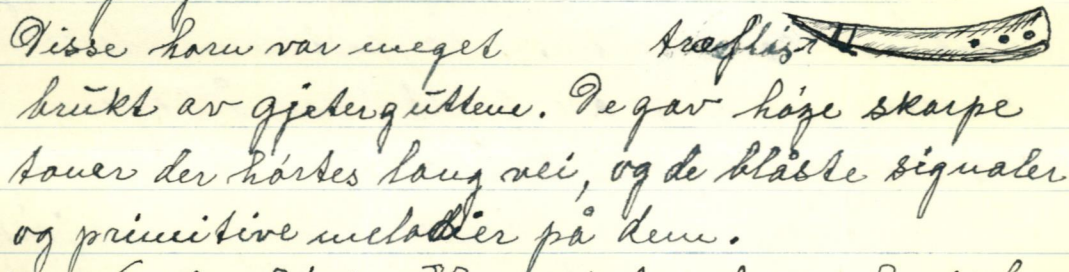 Disse horn var meget træflis
brukt av gjeterguttene. De gav høge skarpe
toner der hørtes lang vei, og de blåste signaler
og primitive melodier på dem.